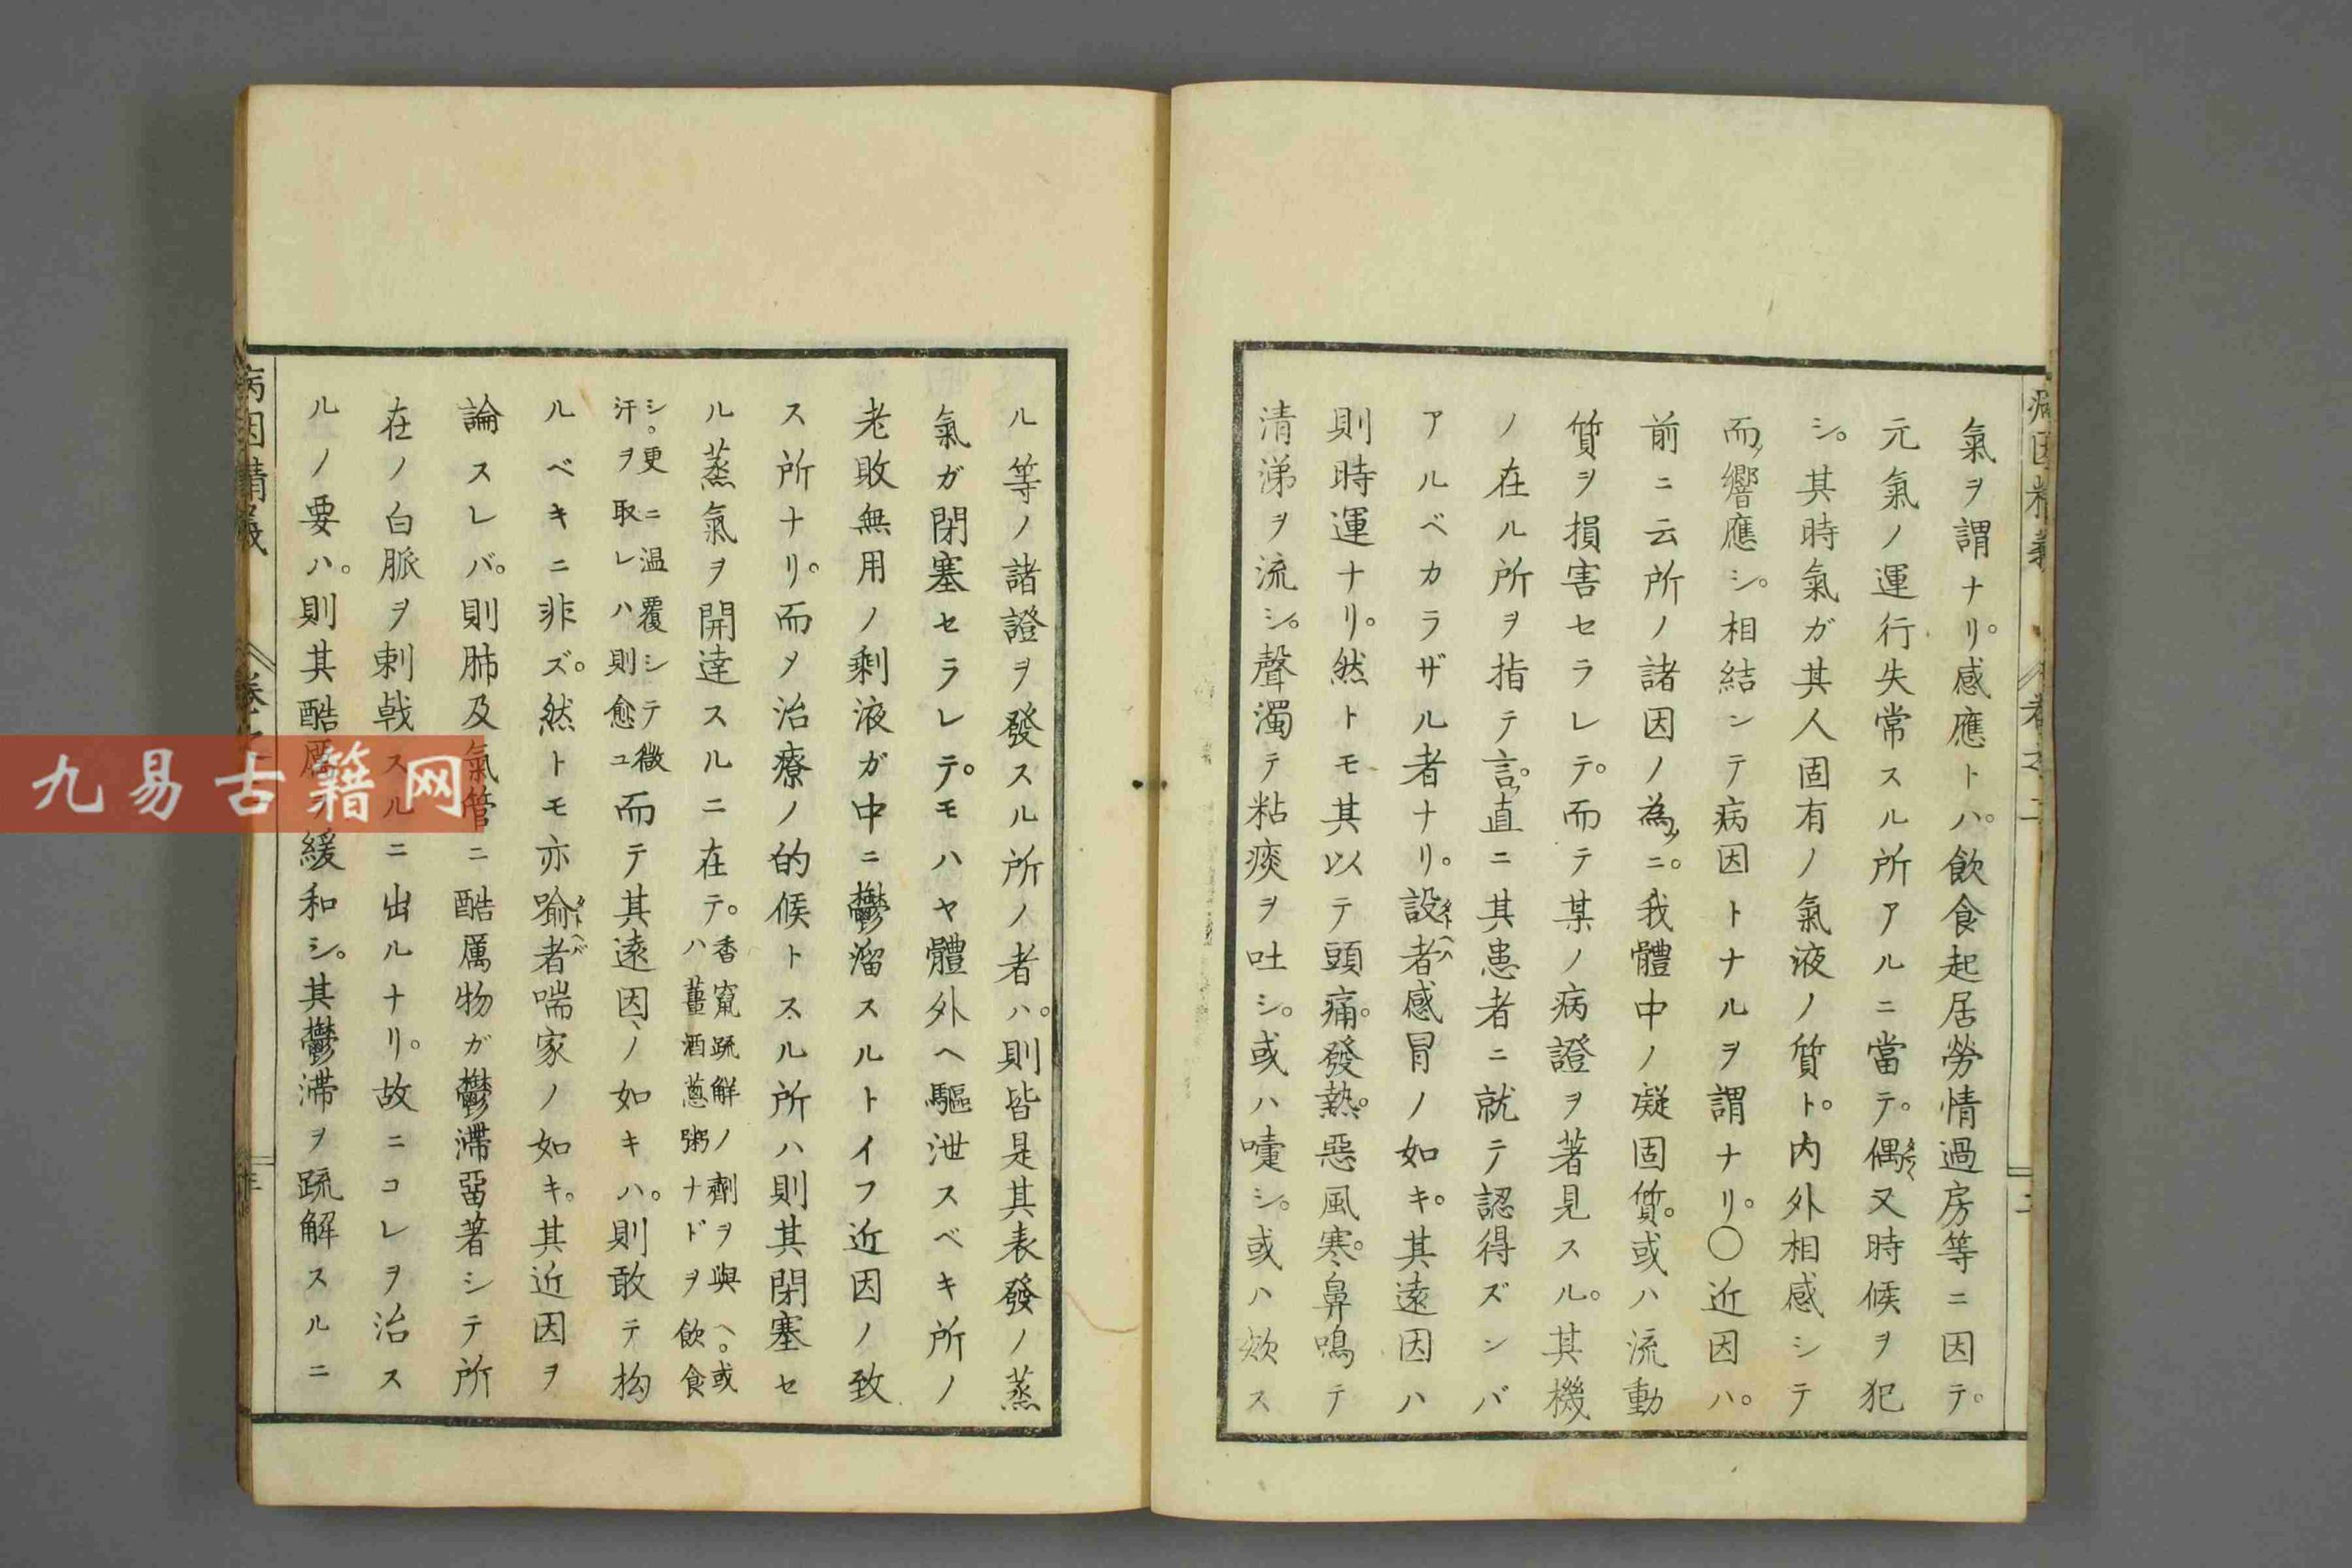 氣ヲ謂ナリ。感應トハ。飲食起居勞情過房等ニ因テ。
元氣ノ運行失常スル所アルニ當テ。偶又時候ヲ犯
シ。其時氣ガ其人固有ノ氣液ノ質ト。内外相感シテ
而響應シ。相結ンテ病因トナルヲ謂ナリ。〇近因ハ。
前ニ云所ノ諸因ノ為ニ。我體中ノ凝固質。或ハ流動
質ヲ損害セラレテ。而テ某ノ病證ヲ著見スル。其機
ノ在ル所ヲ指テ言。直ニ其患者ニ就テ認得ズンバ
アルベカラザル者ナリ。設者感冒ノ如キ。其遠因ハ
則時運ナリ。然トモ其以テ頭痛。發熱。惡風寒。鼻鳴テ
清涕ヲ流シ。聲濁テ粘痰ヲ吐シ。或ハ嚏シ。或ハ欬ス
ル等ノ諸證ヲ發スル所ノ者ハ。則皆是其表發ノ蒸
氣ガ閉塞セラレテ。モハヤ體外ヘ驅泄スベキ所ノ
老敗無用ノ剩液ガ中ニ鬱溜スルトイフ近因ノ致
ス所ナリ。而〆治療ノ的候トスル所ハ則其閉塞セ
ル蒸氣ヲ開達スルニ在テ。香竄疏解ノ劑ヲ與ヘ。或
ハ薑酒蔥粥ナドヲ飲食
シ。更ニ温覆シテ微
汗ヲ取レハ則愈ユ而テ其遠因ノ如キハ。則敢テ拘
ルベキニ非ズ。然トモ亦喩者喘家ノ如キ。其近因ヲ
論スレバ。則肺及氣管ニ酷厲物ガ鬱滯畱著シテ所
在ノ白脈ヲ刺戟スルニ出ルナリ。故ニコレヲ治ス
ルノ要ハ。則其酷厲ヲ緩和シ。其鬱滯ヲ疏解スルニ
病因精義
卷之二
九易古籍网